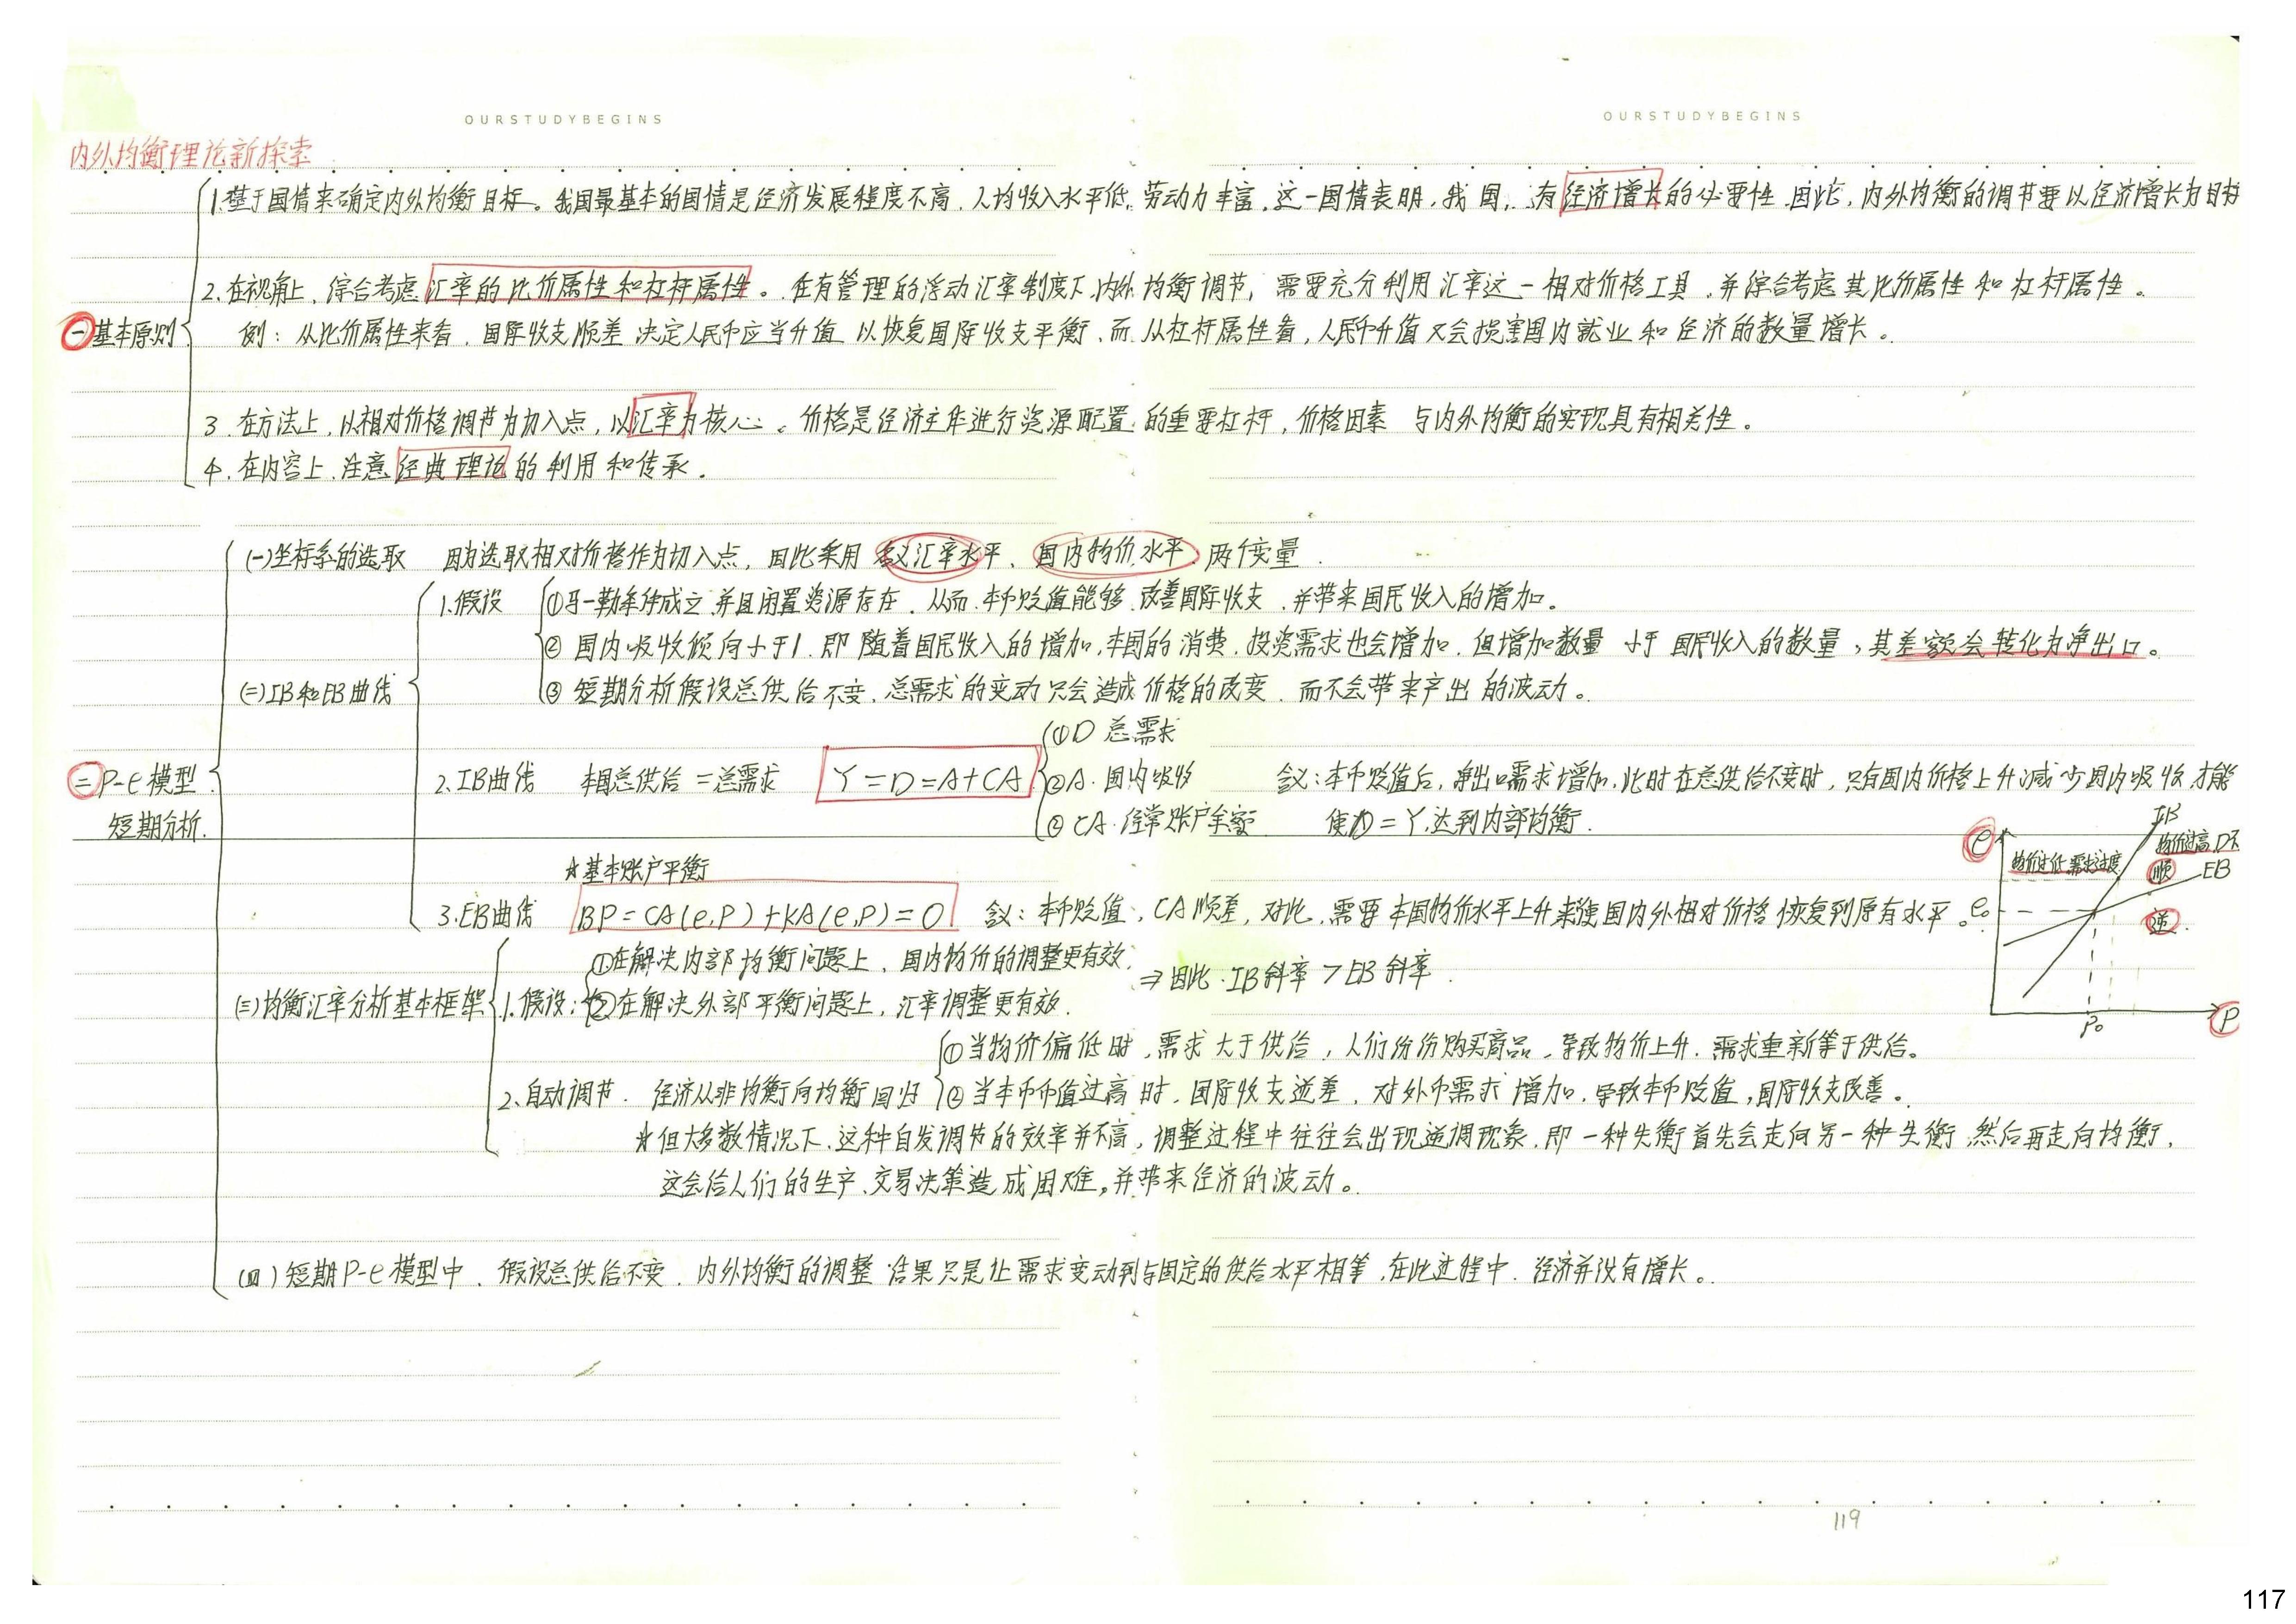 OURSTUDYBEGINS
OURSTUDYBEGINS
内外均衡理论新探索
1.基于国情来确定内外均衡目标。我国最基本的国情是经济发展程度不高、人均收入水平低、劳动力丰富,这一国情表明,我国,有经济增长的必要性.因此,内外均衡的调节要以经济增长为目标
2.在视角上,综合考虑汇率的比价属性和杠杆属性。在有管理的浮动汇率制度下,内外均衡调节,需要充分利用汇率这一相对价格工具,并综合考虑其比价属性和杠杆属性。
㊀基本原则
例:从比价属性来看,国际收支顺差决定人民币应当升值以恢复国际收支平衡,而从杠杆属性看,人民币升值又会损害国内就业和经济的数量增长。
3.在方法上,以相对价格调节为切入点,以汇率为核心。价格是经济主体进行资源配置的重要杠杆,价格因素与内外均衡的实现具有相关性。
4.在内容上,注意经典理论的利用和传承。
(一)坐标系的选取 因为选取相对价格作为切入点,因此采用名义汇率水平、国内物价水平两个变量.
1.假设 ①马-勒条件成立并且闲置资源存在,从而本币贬值能够改善国际收支,并带来国民收入的增加。
②国内吸收倾向小于1.即随着国民收入的增加,本国的消费、投资需求也会增加,但增加数量小于国民收入的数量,其差额会转化为净出口。
(二)IB和EB曲线
③短期分析假设总供给不变,总需求的变动只会造成价格的改变,而不会带来产出的波动。
①D 总需求
㊁P-e模型
短期分析.
2.IB曲线 本国总供给=总需求 Y=D=A+CA ②A.国内吸收 含义:本币贬值后,净出口需求增加,此时在总供给不变时,只有国内价格上升减少国内吸收,才能
③CA.经常账户余额 使D=Y,达到内部均衡.
☆基本账户平衡
3.EB曲线 BP=CA(e,P)+KA(e,P)=0 含义:本币贬值,CA顺差,对此,需要本国物价水平上升来使国内外相对价格恢复到原有水平。
IB
e
物价过低需求过度
物价过高D不
顺
EB
e₀
逆
P₀
P
①在解决内部均衡问题上,国内物价的调整更有效,
⇒因此.IB斜率>EB斜率.
(三)均衡汇率分析基本框架 1.假设:②在解决外部平衡问题上,汇率调整更有效.
①当物价偏低时,需求大于供给,人们纷纷购买商品,导致物价上升.需求重新等于供给。
2.自动调节.经济从非均衡向均衡回归 ②当本币币值过高时,国际收支逆差,对外币需求增加,导致本币贬值,国际收支改善。
☆但大多数情况下,这种自发调节的效率并不高,调整过程中往往会出现逆调现象.即一种失衡首先会走向另一种失衡,然后再走向均衡,
这会给人们的生产、交易决策造成困难,并带来经济的波动。
(四)短期P-e模型中,假设总供给不变,内外均衡的调整结果只是让需求变动到与固定的供给水平相等,在此过程中.经济并没有增长。
119
117